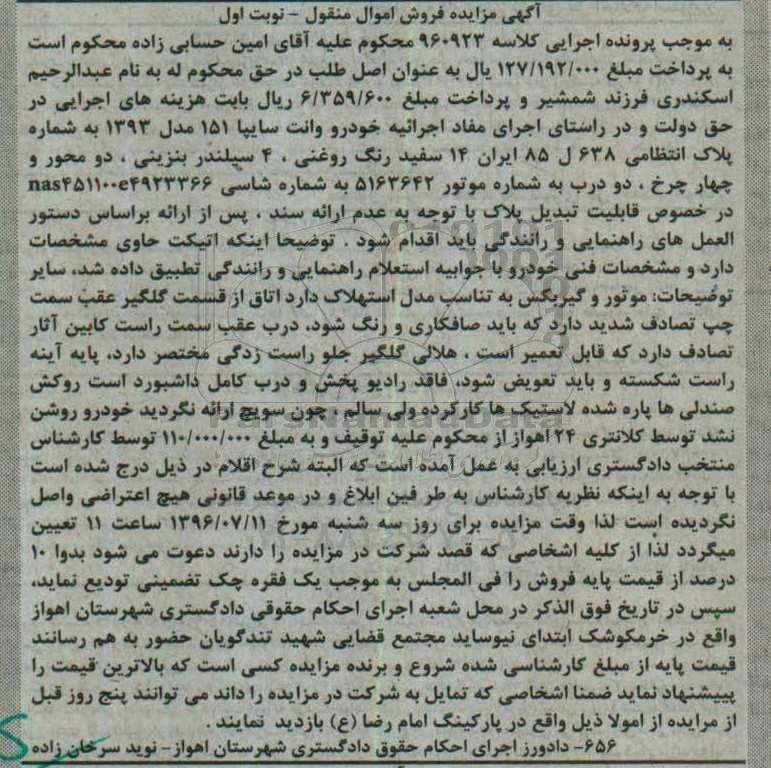 آگهی مزایده فروش اموال منقول - نوبت اول
به موجب پرونده اجرایی کلاسه ۹۶۰۹۲۳ محکوم علیه آقای امین حسابی زاده محکوم است
به پرداخت مبلغ ۱۲۷/۱۹۲/۰۰۰ یال به عنوان اصل طلب در حق محکوم له به نام عبدالرحیم
اسکندری فرزند شمشیر و پرداخت مبلغ ۶/۳۵۹/۶۰۰ ریال بابت هزینه های اجرایی در
حق دولت و در راستای اجرای مفاد اجرائیه خودرو وانت سایپا ۱۵۱ مدل ۱۳۹۳ به شماره
پلاک انتظامی ۶۳۸ ل ۸۵ ایران ۱۴ سفید رنگ روغنی ، ۴ سیلندر بنزینی ، دو محور و
چهار چرخ ، دو درب به شماره موتور ۵۱۶۳۶۴۲ به شماره شاسی nas۴۵۱۱۰۰e۴۹۲۳۳۶۶
در خصوص قابلیت تبدیل پلاک با توجه به عدم ارائه سند ، پس از ارائه براساس دستور
العمل های راهنمایی و رانندگی باید اقدام شود . توضیحا اینکه اتیکت حاوی مشخصات
دارد و مشخصات فنی خودرو با جوابیه استعلام راهنمایی و رانندگی تطبیق داده شد، سایر
توضیحات: موتور و گیربکس به تناسب مدل استهلاک دارد اتاق از قسمت گلگیر عقب سمت
چپ تصادف شدید دارد که باید صافکاری و رنگ شود، درب عقب سمت راست کابین آثار
تصادف دارد که قابل تعمیر است ، هلالی گلگیر جلو راست زدگی مختصر دارد، پایه آینه
راست شکسته و باید تعویض شود، فاقد رادیو پخش و درب کامل داشبورد است روکش
صندلی ها پاره شده لاستیک ها کارکرده ولی سالم ، چون سویچ ارائه نگردید خودرو روشن
نشد توسط کلانتری ۲۴ اهواز از محکوم علیه توقیف و به مبلغ ۱۱۰/۰۰۰/۰۰۰ توسط کارشناس
منتخب دادگستری ارزیابی به عمل آمده است که البته شرح اقلام در ذیل درج شده است
با توجه به اینکه نظریه کارشناس به طر فین ابلاغ و در موعد قانونی هیچ اعتراضی واصل
نگردیده است لذا وقت مزایده برای روز سه شنبه مورخ ۱۳۹۶/۰۷/۱۱ ساعت ۱۱ تعیین
میگردد لذا از کلیه اشخاصی که قصد شرکت در مزایده را دارند دعوت می شود بدوا ۱۰
درصد از قیمت پایه فروش را فی المجلس به موجب یک فقره چک تضمینی تودیع نماید،
سپس در تاریخ فوق الذکر در محل شعبه اجرای احکام حقوقی دادگستری شهرستان اهواز
واقع در خرمکوشک ابتدای نیوساید مجتمع قضایی شهید تندگویان حضور به هم رسانند
قیمت پایه از مبلغ کارشناسی شده شروع و برنده مزایده کسی است که بالاترین قیمت را
پیپیشنهاد نماید ضمنا اشخاصی که تمایل به شرکت در مزایده را داند می توانند پنج روز قبل
از مرایده از امولا ذیل واقع در پارکینگ امام رضا (ع) بازدید نمایند .
۶۵۶- دادورز اجرای احکام حقوق دادگستری شهرستان اهواز- نوید سرخان زاده